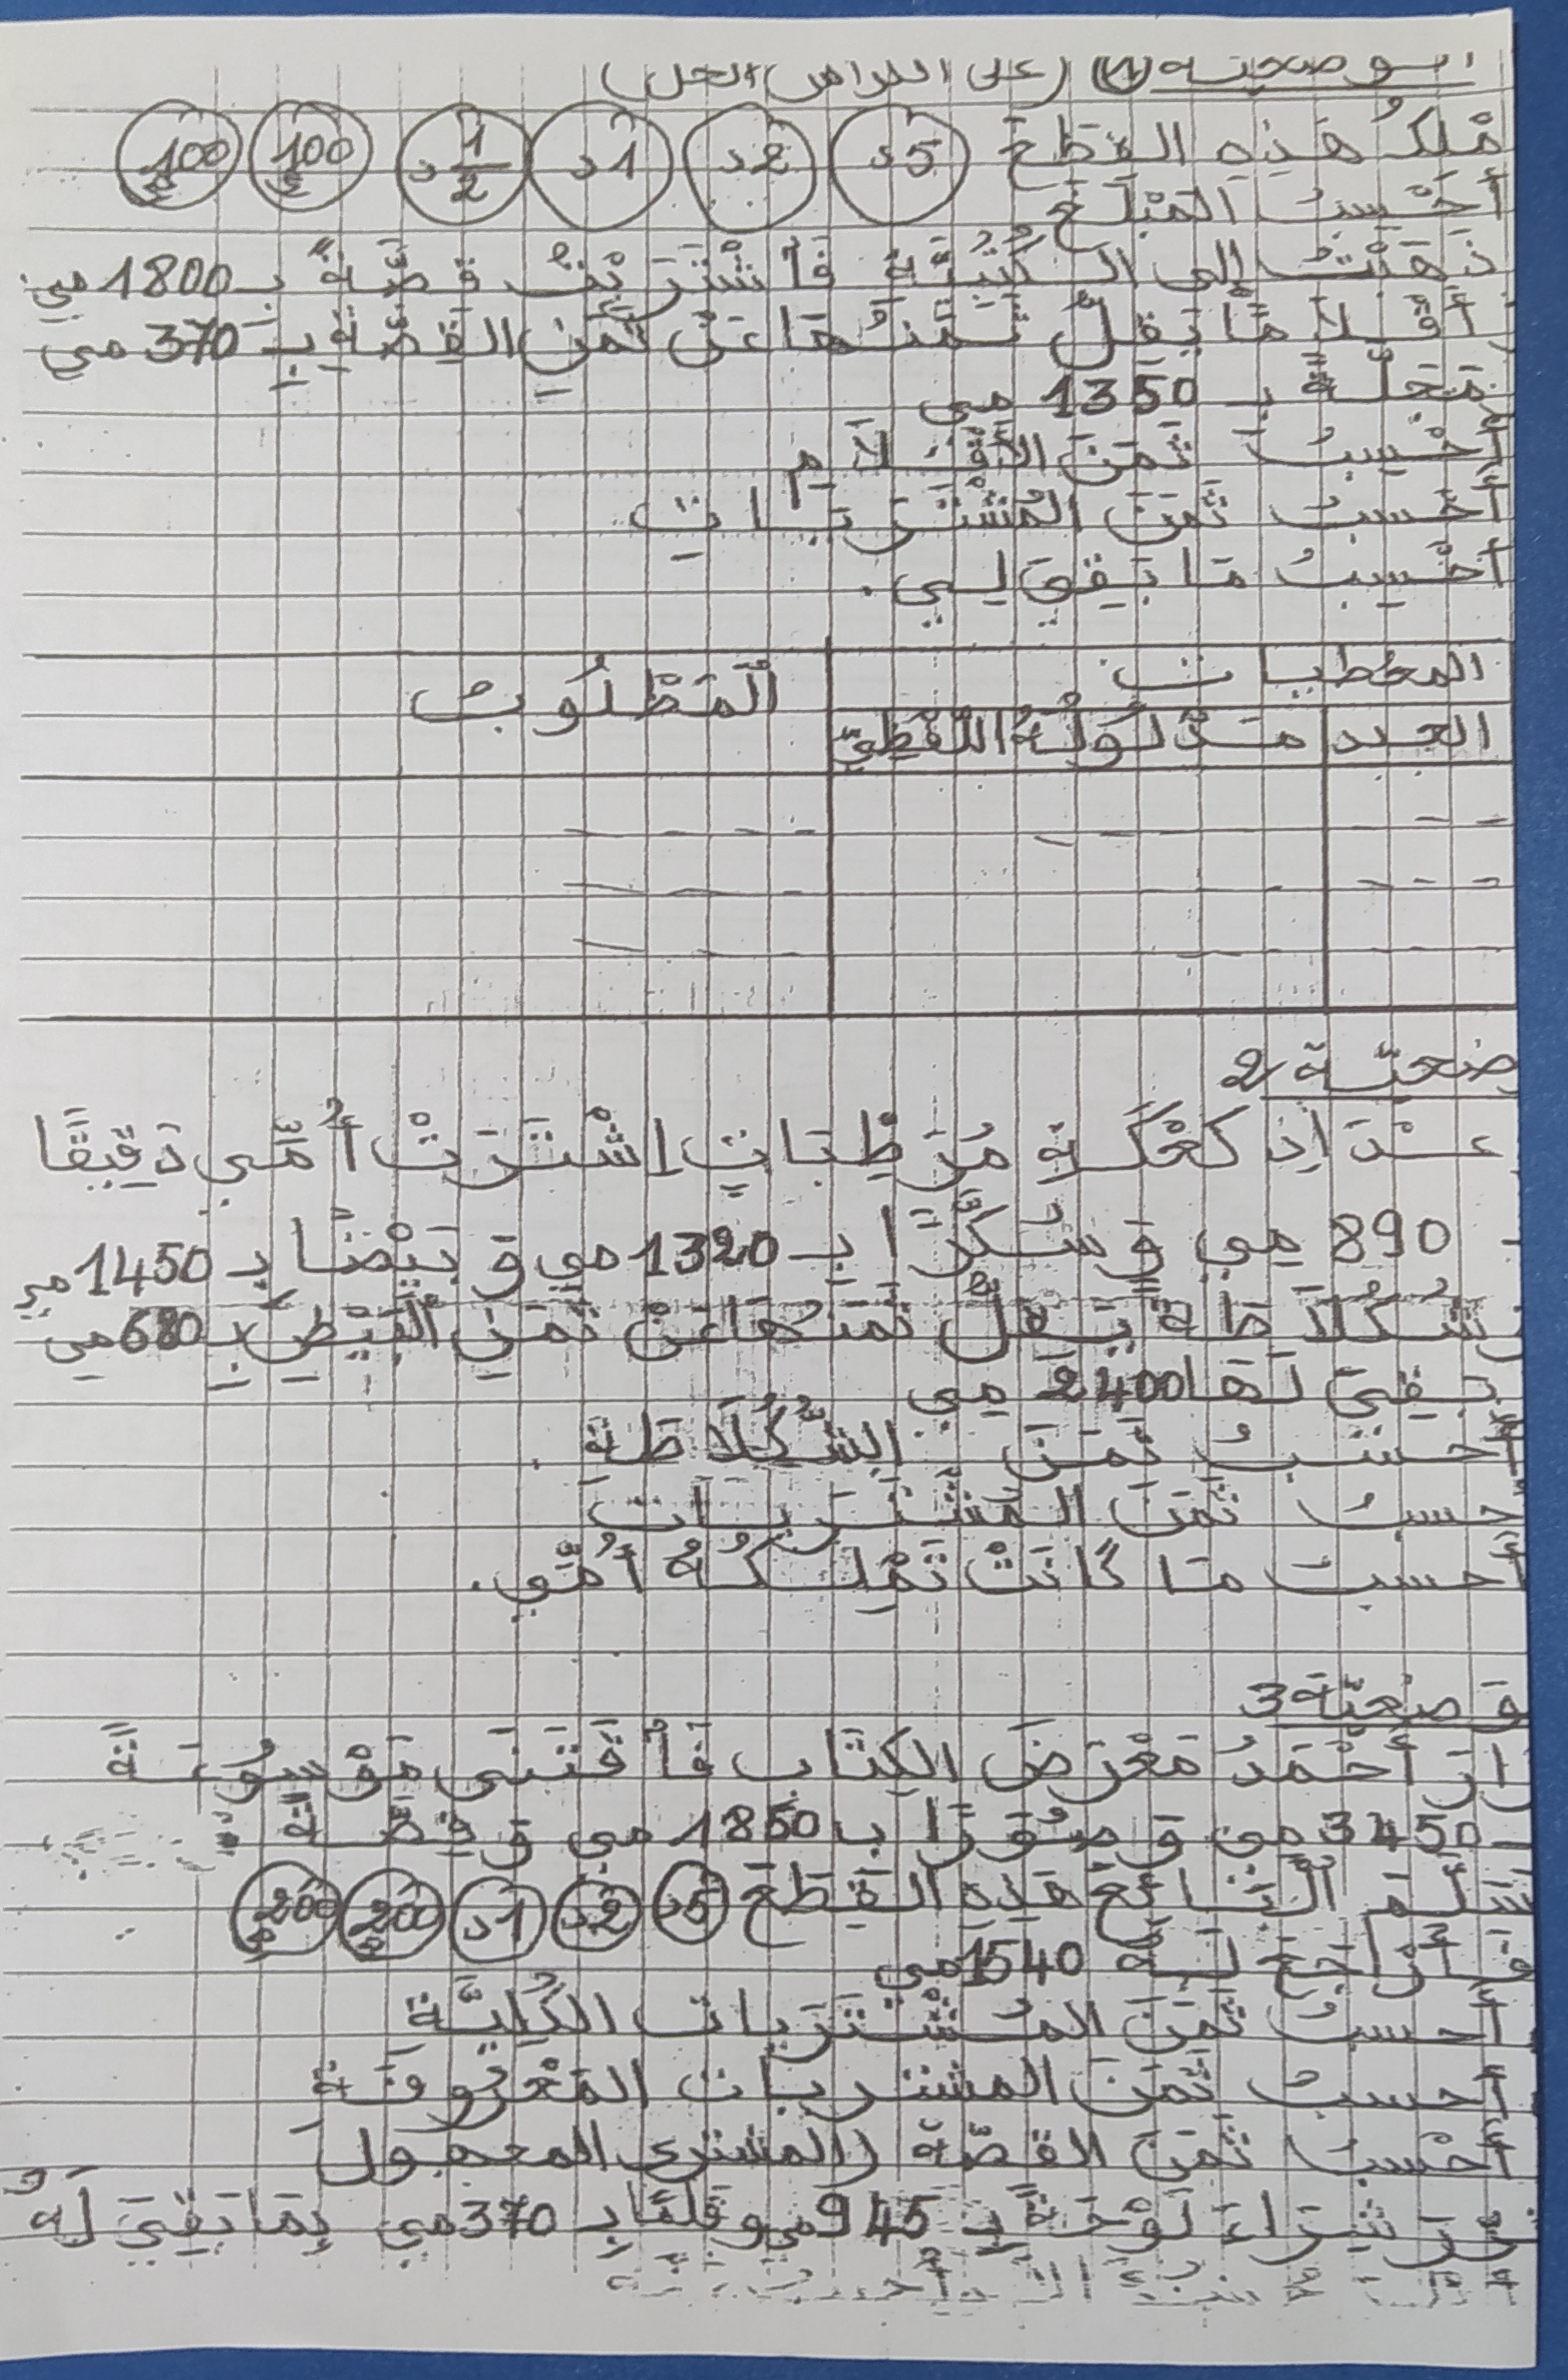 الوضعية (1) (على الكراس الحل)
أمْلكُ هَذِهِ القِطَعَ 5د 2د 1د 1/2د 100مي 100مي
أَحْسِبُ المَبْلَغَ
ذَهَبْتُ إلى الكُتُبِيَّةِ فَاشْتَرَيْتُ قِصَّةً بـ 1800مي
أَقْلاَمًا يَقِلُّ ثَمَنُهَا عَنْ ثَمَنِ القِصَّةِ بـِ 370 مي
مَجَلَّةً بـ 1350 مي
أَحْسِبُ ثَمَنَ الأَقْلاَمِ
أَحْسبُ ثَمَنَ المُشْتَرَيَاتِ
أَحْسِبُ مَا بَقِيَ لِي.
المعطيات المَطْلُوبُ
العدد مَدْلُولُهُ اللَّفْظِيّ
وضعيّة 2
كَعْكَةِ مُرَطِّبَاتٍ اِشْتَرَتْ أُمِّي دَقِيقًا
890 مي وَ سُكَّرًا بـ 1320 مي وَ بَيْضًا بـ 1450مي
شُكُلاَطَةً يَقِلُّ ثَمَنُهَا عَنْ ثَمَنِ البَيْضِ بـِ 680مي
بَقِيَ لَهَا 2400 مي
أَحسبُ ثَمَنَ الشُّكُلاَطَة.
أحسبُ ثَمَنَ المُشْتَرَيات
أحسبُ مَا كَانَتْ تَمْلِكُهُ أُمِّي.
وَضعيّة 3
زَارَ أَحْمَدُ مَعْرَضَ الكِتَابِ فَاقْتَنَى مَوْسُوعَةً
بـ 3450 مي وَ صُوَرًا بـ 1850 مي وَ قِصَّةً
سَلَّمَ البَائِعَ هَذِهِ القِطَعَ 5د 2د 1د 200مي 200مي
فَأَرْجَعَ لَهُ 1540مي
أحسبُ ثَمَنَ المُشْتَرَيات الكُلِيَّة
أحسبُ ثَمَنَ المشتريات المَعْرُوفَة
أَحْسبُ ثَمَنَ القصّة (المشترى المجهول
شِرَاءَ لَوْحَةً بـِ 945مي وَ قَلَمًا بـِ 370مي بِمَا بَقِيَ لَهُ